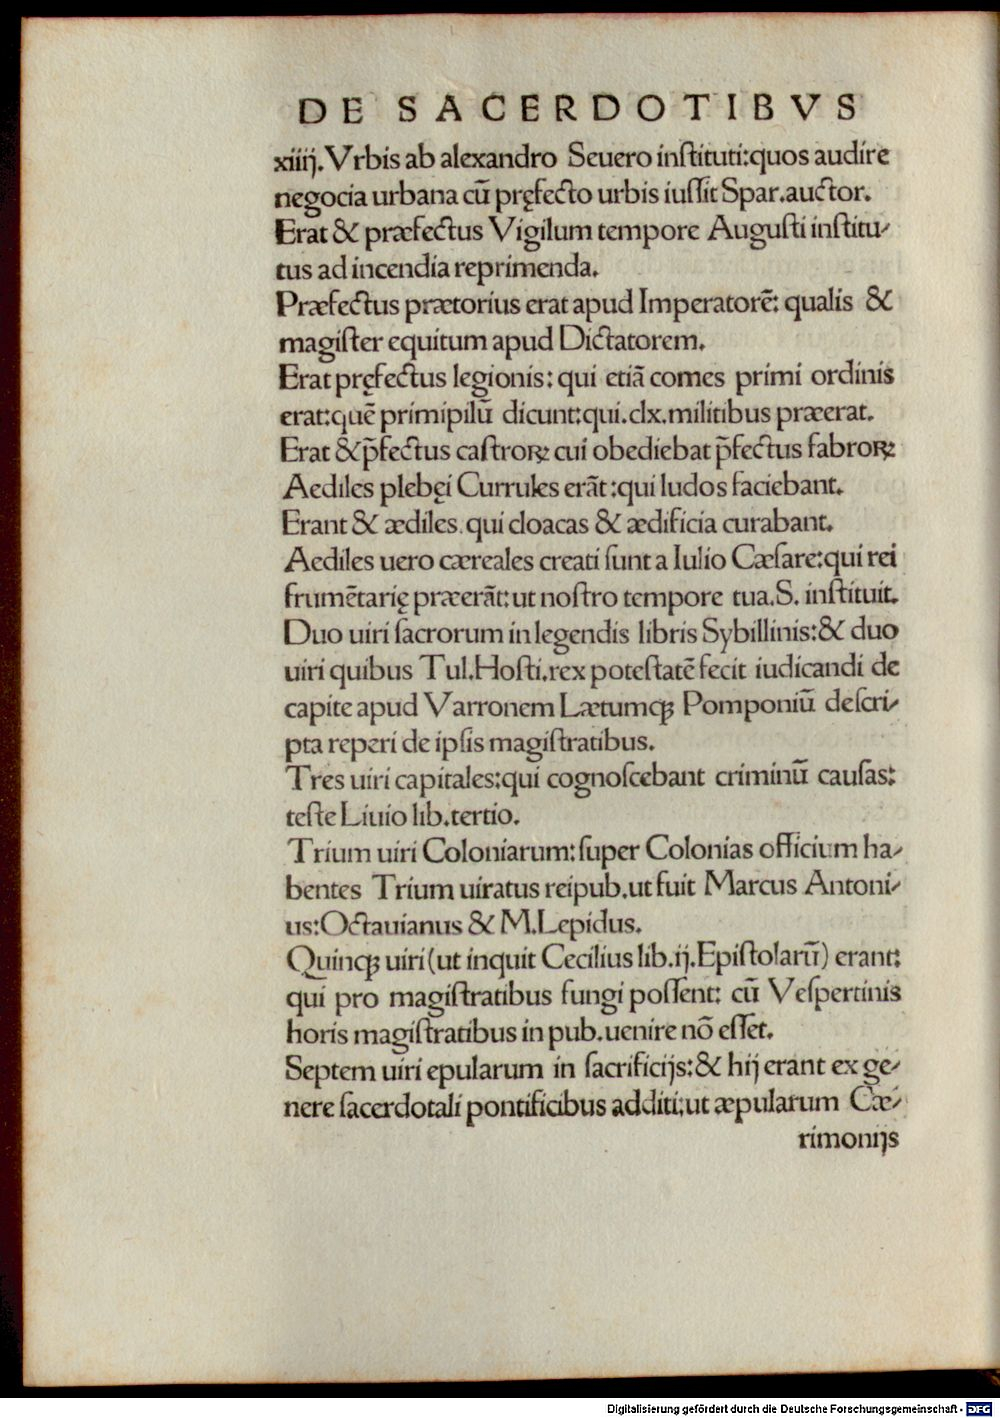 DE SACERDOTIBVS
xiiij. Vrbis ab alexandro Seuero inſtituti: quos audire
negocia urbana cū pręfecto urbis iuſſit Spar. auctor.
Erat & præfectus Vigilum tempore Auguſti inſtitu⸗
tus ad incendia reprimenda.
Præfectus prætorius erat apud Imperatorē: qualis &
magiſter equitum apud Dictatorem.
Erat pręfectus legionis: qui etiā comes primi ordinis
erat: quē primipilū dicunt: qui. clx. militibus præerat.
Erat & p̄fectus caſtroꝝ: cui obediebat p̄fectus fabroꝝ:
Aediles plebęi Currules erāt: qui ludos faciebant.
Erant & ædiles. qui cloacas & ædificia curabant.
Aediles uero cæreales creati ſunt a Iulio Cæſare: qui rei
frumētarię præerāt: ut noſtro tempore tua. S. inſtituit.
Duo uiri ſacrorum in legendis libris Sybillinis: & duo
uiri quibus Tul. Hoſti. rex poteſtatē fecit iudicandi de
capite apud Varronem Lætumq; Pomponiū deſcri⸗
pta reperi de ipſis magiſtratibus.
Tres uiri capitales: qui cognoſcebant criminū cauſas:
teſte Liuio lib. tertio.
Trium uiri Coloniarum: ſuper Colonias officium ha⸗
bentes Trium uiratus reipub. ut fuit Marcus Antoni⸗
us: Octauianus & M. Lepidus.
Quinq; uiri (ut inquit Cecilius lib. ij. Epiſtolarū) erant:
qui pro magiſtratibus fungi poſſent: cū Veſpertinis
horis magiſtratibus in pub. uenire nō eſſet.
Septem uiri epularum in ſacrificijs: & hij erant ex ge⸗
nere ſacerdotali pontificibus additi: ut æpularum Cæ⸗
rimonijs
Digitalisierung gefördert durch die Deutsche Forschungsgemeinschaft - DFG